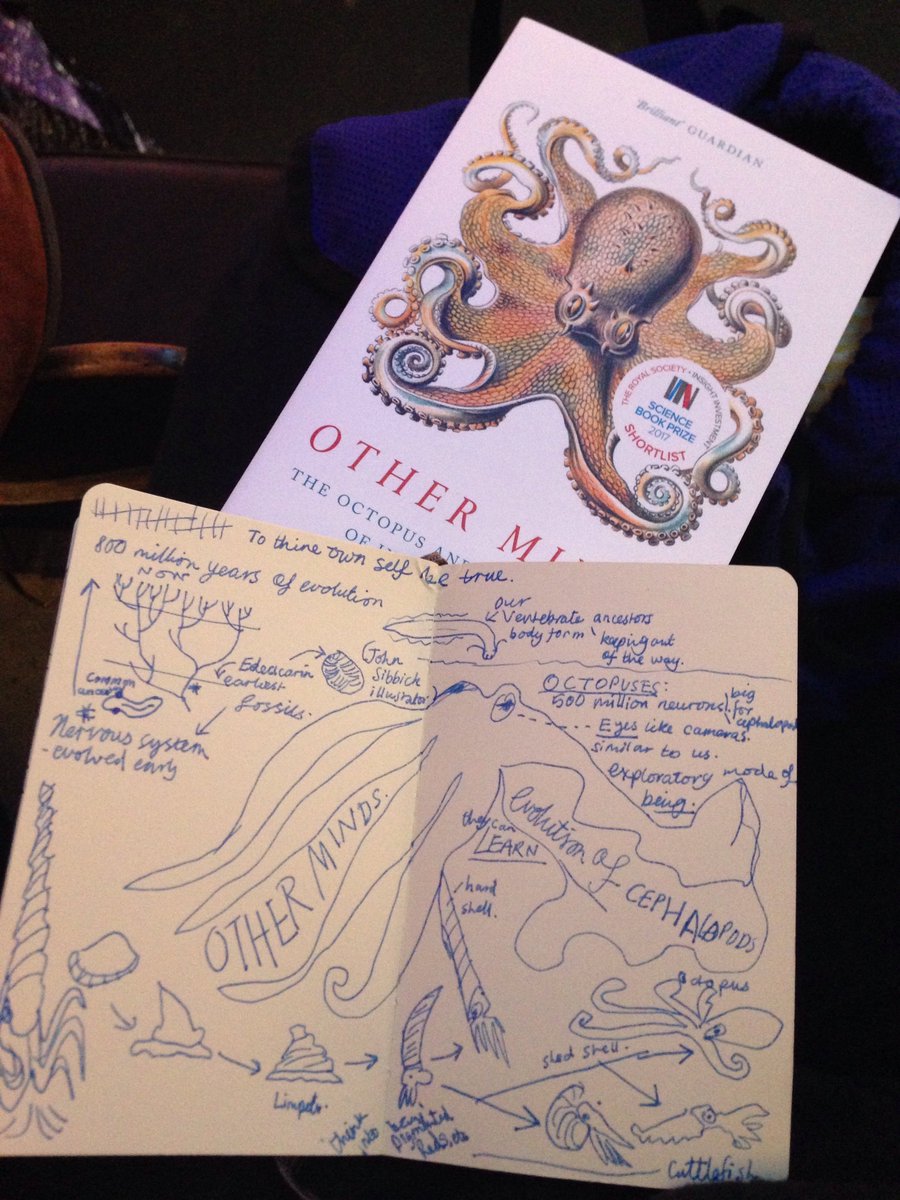 'Brilliant' GUARDIAN
THE ROYAL SOCIETY • INSIGHT INVESTMENT
SCIENCE
BOOK PRIZE
2017
SHORTLIST
OTHER MI
THE OCTOPUS AND
OF
To thine own self be true.
800 million years of evolution
NOW
Common
Ediacarin
earliest
fossils.
John
Sibbick
illustrator
Nervous system
- evolved early
OTHER MINDS.
our
Vertebrate ancestors
body form
keeping out
of the way.
OCTOPUSES:
500 million neurons
big
for
cephalopod
Eyes like cameras
similar to us.
exploratory mode of
being.
they can
LEARN
evolution of
CEPHALOPODS
hard
shell.
Octopus
shed shell.
Limpets.
think
into
being
Cuttlefish